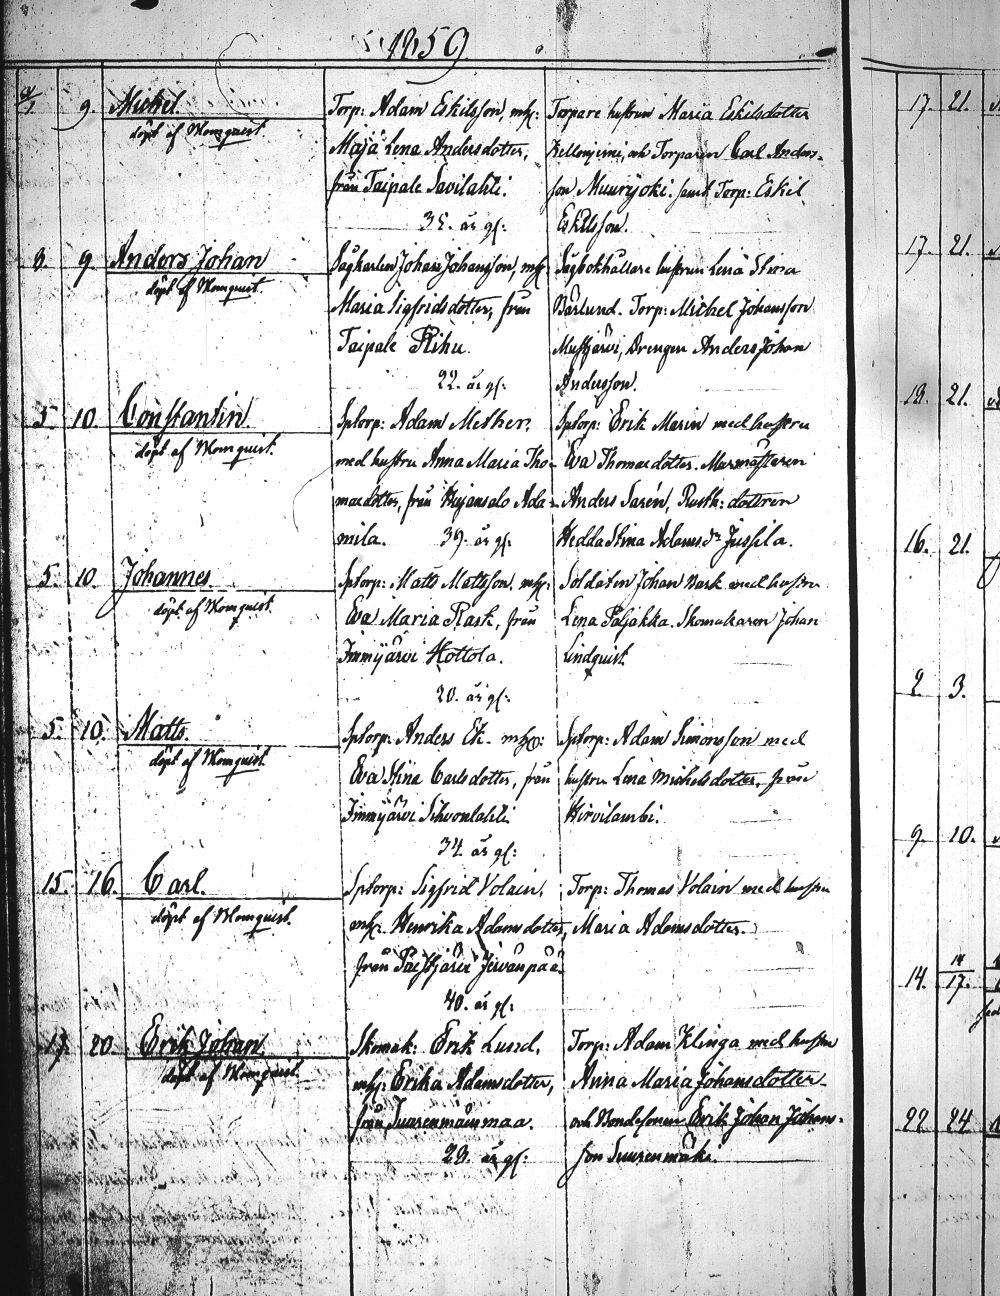 1859.
9. Michel.
döpt af Blomquist.
Torp: Adam Eskilsson, mh:
Maja Lena Andersdotter,
från Taipale Savilahti.
35. år gl:
Torpare hustrun Maria Eskilsdotter
och Torparen Carl Anders-
son Muurijoki. samt Torp: Eskil
Eskilsson.
8. 9. Anders Johan
döpt af Blomquist.
Sågkarlen Johan Johansson, mh:
Maria Sigfridsdotter, från
Taipale Rihu.
22. år gl:
Sågbokhållare hustrun Lena Stina
Barlund. Torp: Michel Johansson
Drengen Anders Johan
Andersson.
5. 10. Constantin.
döpt af Blomquist.
Sptorp: Adam Mether,
med hustru Anna Maria Tho-
masdotter, från Ada-
mila. 39. år gl:
Sptorp: Erik Marin med hustru
Eva Thomasdotter. Masmästaren
Anders Sarén, Rusth: dottren
Hedda Stina Adamsdr Jussila.
5. 10. Johannes.
döpt af Blomquist.
Sptorp: Matts Mattsson, mh:
Eva Maria Rask, från
Immijärvi Hottola.
20. år gl:
Soldaten Johan Bark med hustru
Lena Paljakka. Skomakaren Johan
Lindquist.
5. 10. Matts.
döpt af Blomquist.
Sptorp: Anders Ek. mh:
Eva Stina Carlsdotter, från
Immijärvi Sihvonlahti.
34 år gl:
Sptorp: Adam Simonsson med
hustru Lena Michelsdotter, från
Hirvilambi.
15. 16. Carl.
döpt af Blomquist.
Sptorp: Sigfrid Volain,
mh: Henrika Adamsdotter,
från
40. år gl:
Torp: Thomas Volain med hustru
Maria Adamsdotter.
17. 20. Erik Johan
döpt af Blomquist.
Skomak: Erik Lund,
mh: Erika Adamsdotter,
från Suurenmäenmaa.
28. år gl:
Torp: Adam Klinga med hustru
Anna Maria Johansdotter
och Bondesonen Erik Johan Johans-
son Suurenmäki.
17. 21.
17. 21.
18. 21.
16. 21.
2. 3.
9. 10.
14. 14/17.
22 24